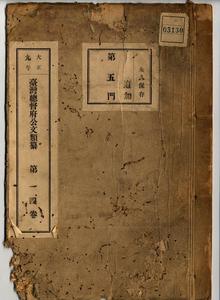 03130
永久保存
追加
第五門
大正九年
臺灣總督府公文類纂
第一四卷